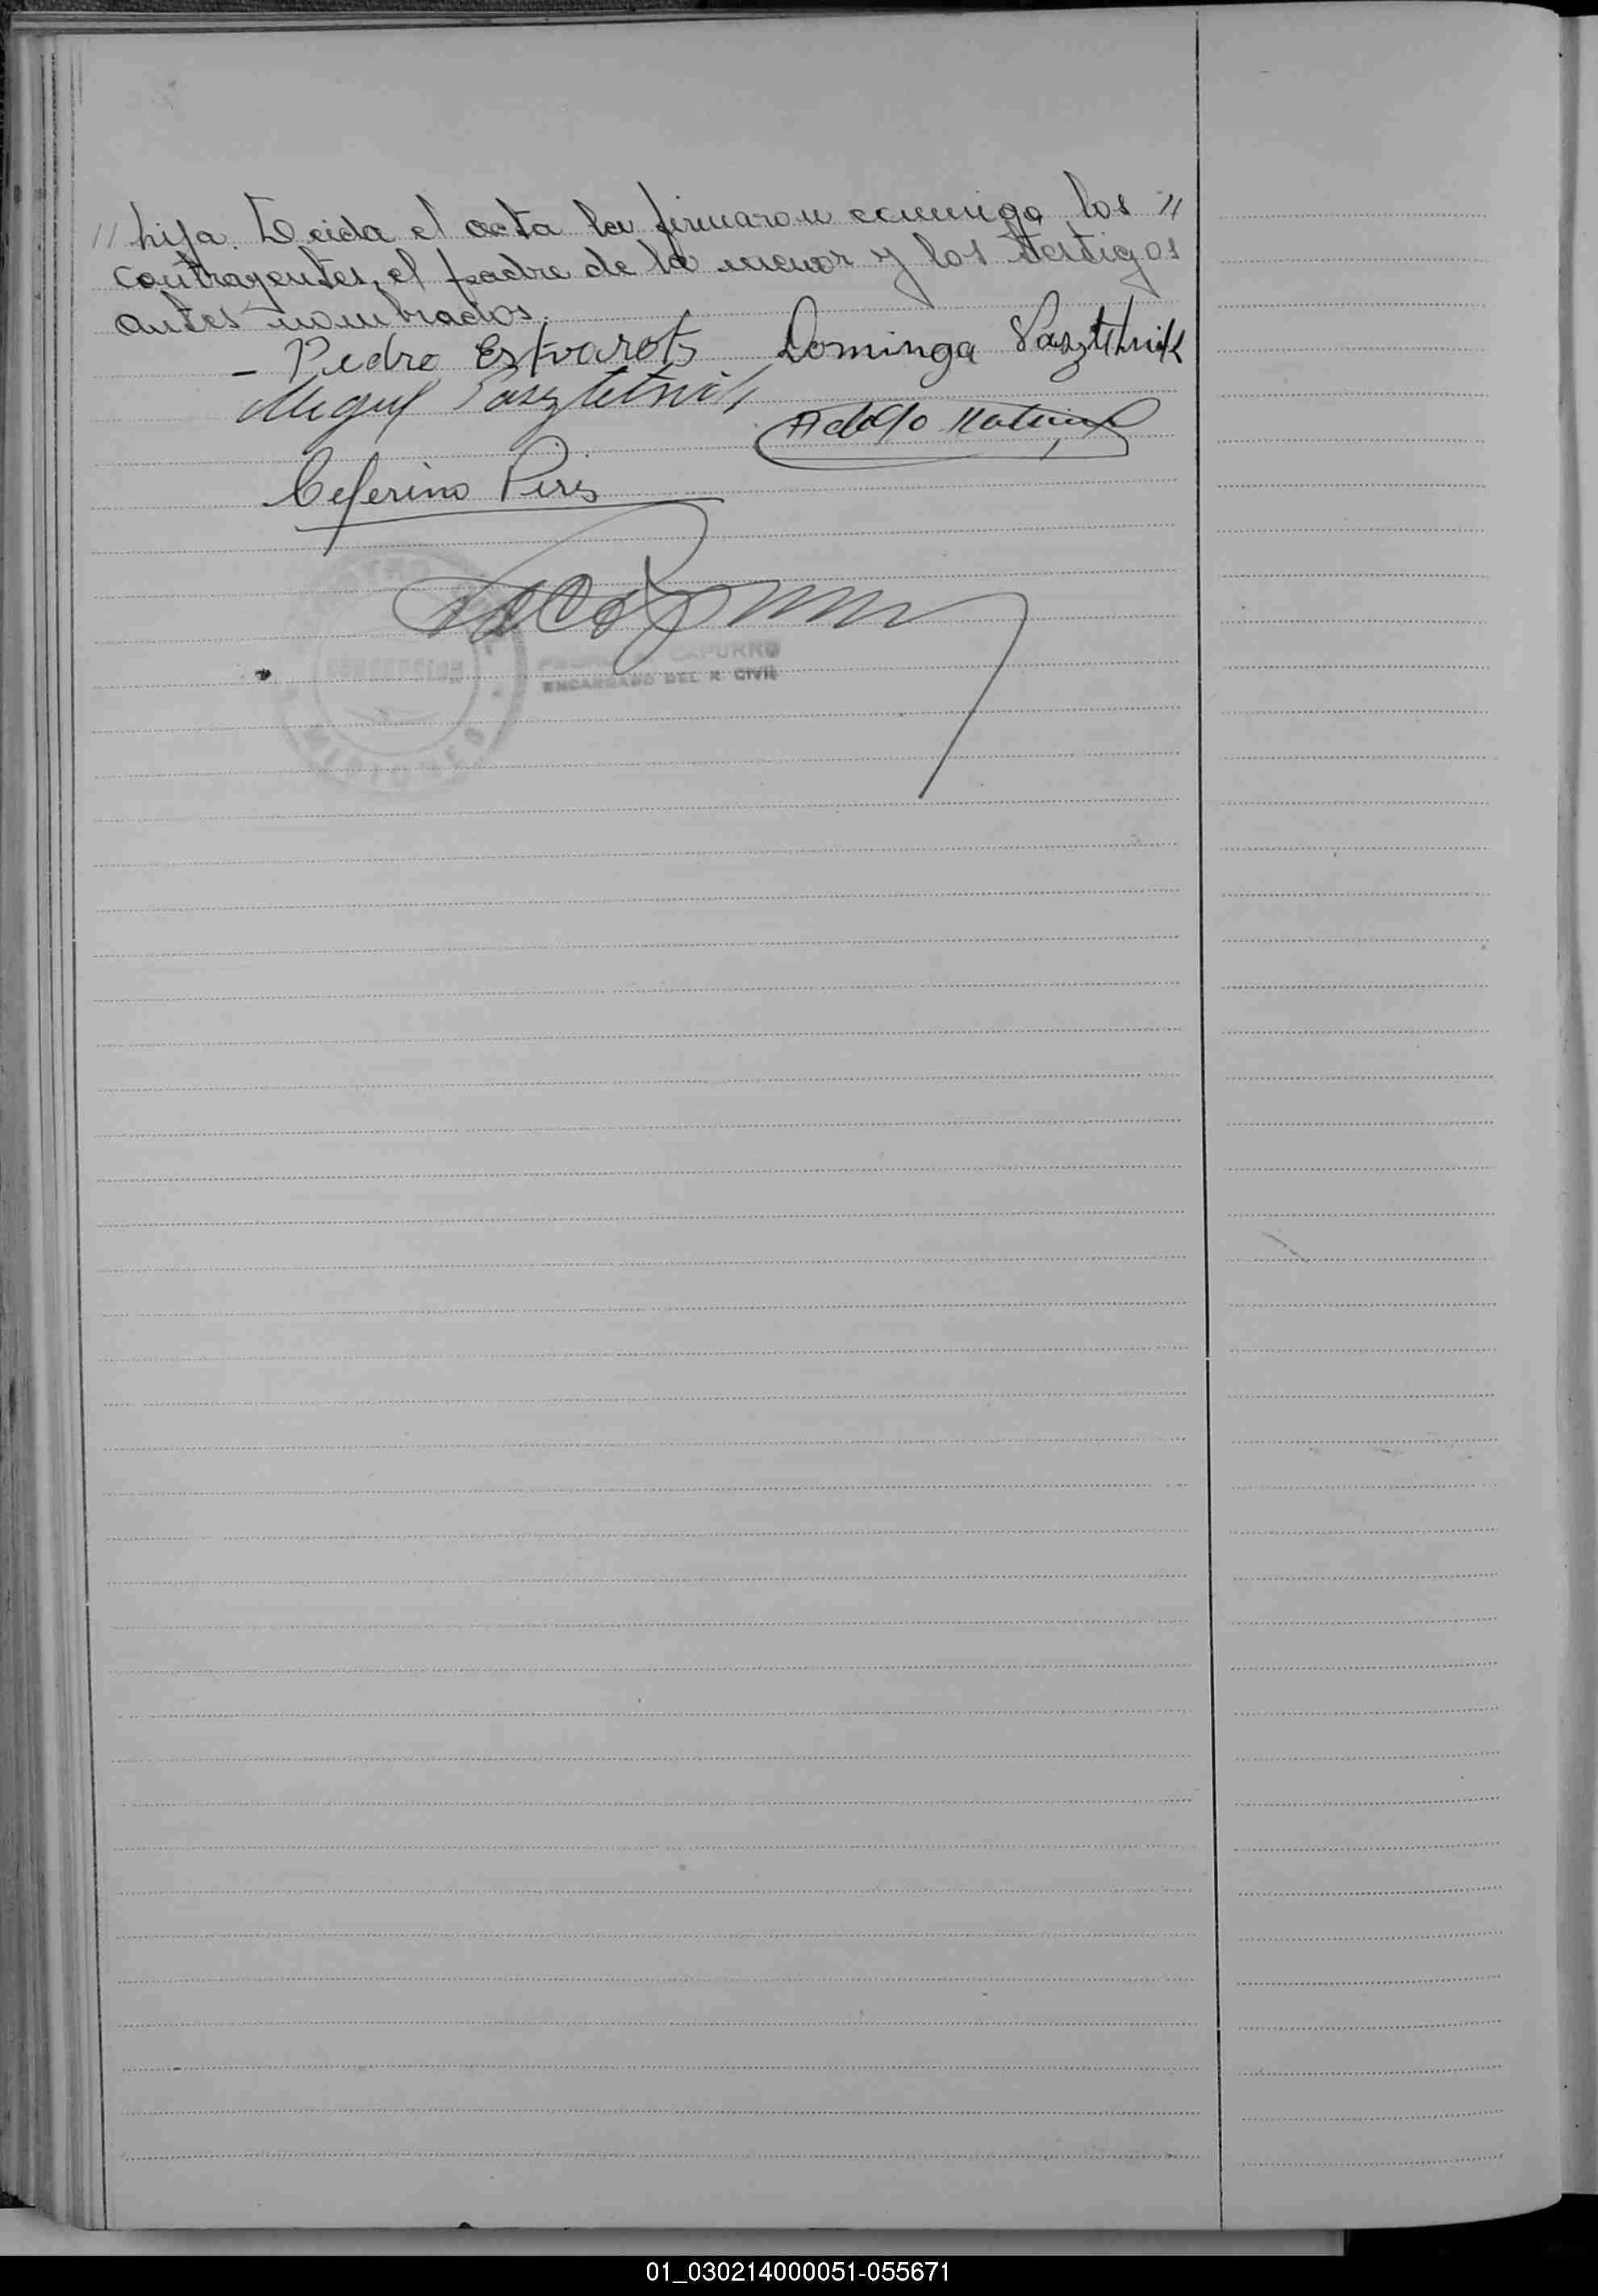 // hija. Leida el acta la firmaron conmigo, los //
contrayentes, el padre de la menor y los testigos
antes nombrados.
- Pedro Estvarots Dominga Pasztetnik
Miguel Pasztetnik
Adolfo
Ceferino Piris
CONCEPCION
CAPURRO
ENCARGADO DEL R. CIVIL
MISIONES
01_030214000051-055671